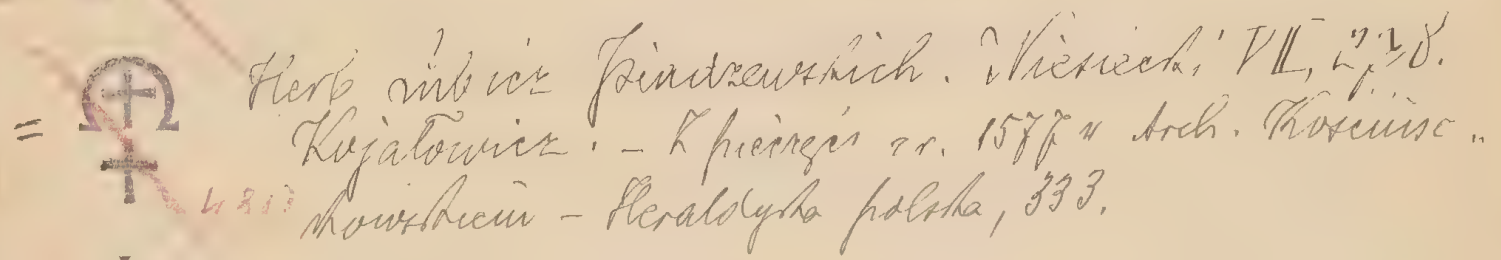 Herb Lubicz Pindzewskich. Niesiecki VII, 278.
= Kojałowicz. – Z pieczęci z r. 1577 w Arch. Kościusz-
kowskiem – Heraldyka polska, 333.